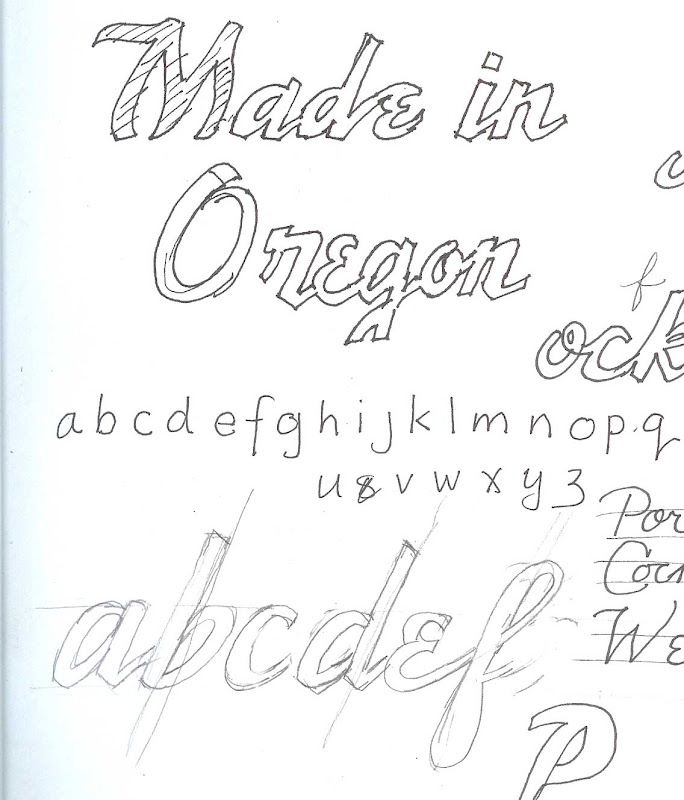 Made in
Oregon
f
ock
a b c d e f g h i j k l m n o p . q
u 8 v w x y 3
Por
Coc
We
abcdef
P